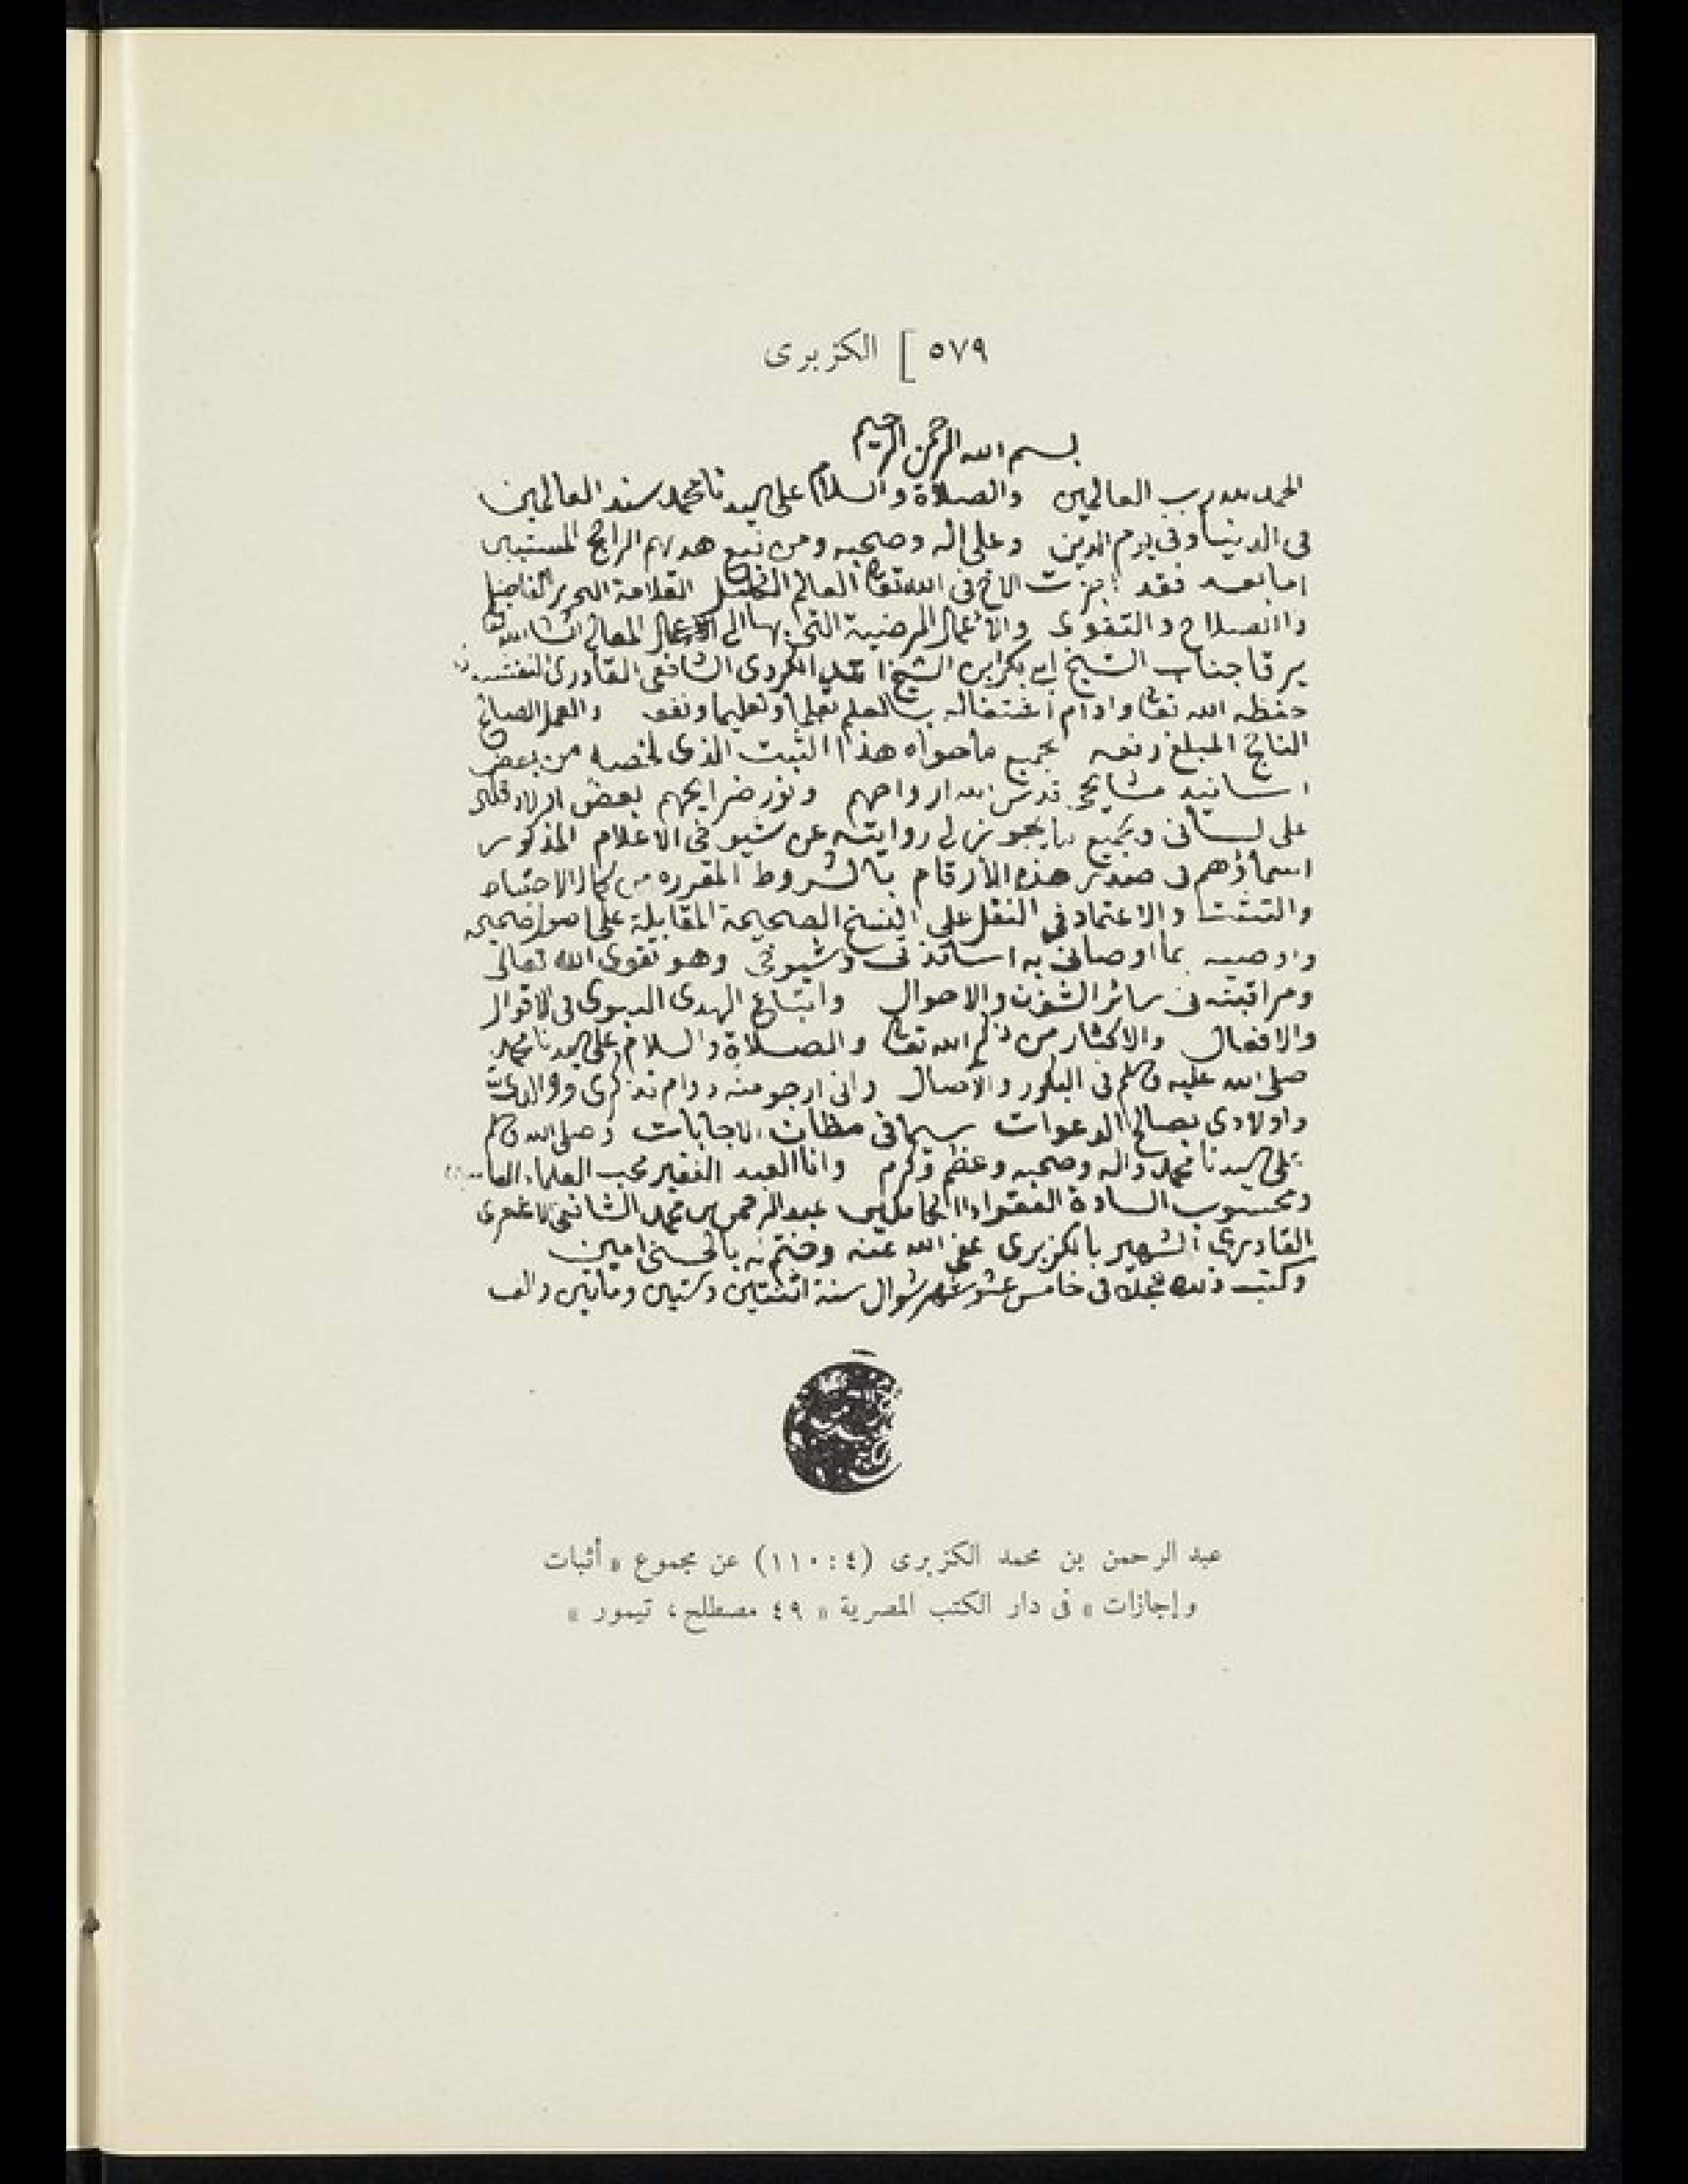 ٥٧٩ ] الكزبرى
بسم الله الرحمن الرحيم
الحمد لله رب العالمين والصلاة والسلام على سيدنا محمد سند العالمين
فى الدنيا وفى يوم الدين وعلى اله وصحبه ومن تبع هديهم الراجح المستبين
اما بعد فقد اجزت الاخ فى الله تعا العالم العلامة النحرير الفاضل
ذا الصلاح والتقوى والاعمال المرضية التى بها الى المعالى انشا الله تعا
يرقا جناب الشيخ ابى بكر ابن الشيخ الكردى الشافعى القادرى
حفظه الله تعا وادام اشتغاله بالعلم تعلما وتعليما ونفعه والعمل الصالح
الناجح المبلغ رفعه بجميع ما حواه هذا الثبت الذى لخصه من بعض
اسانيد مشايخى قدس الله ارواحهم ونور ضرايحهم بعض اولاد قلبى
على لسانى وبجميع ما يجوز لى روايته عن شيوخى الاعلام المذكور
اسماؤهم فى صدر هذه الارقام بالشروط المقرره من كمال الاحتياط
والتثبت والاعتماد فى النقل على النسخ الصحيحة المقابلة على اصول صحيحه
واوصيه بما اوصانى به اساتذتى وشيوخى وهو تقوى الله تعالى
ومراقبته فى سائر الشؤن والاحوال واتباع الهدى النبوى فى الاقوال
والافعال والاكثار من ذكر الله تعا والصلاة والسلام على سيدنا محمد
صلى الله عليه وسلم فى البكور والآصال وانى ارجو منه دوام تذكرى ووالدى
واولادى بصالح الدعوات سيما فى مظان الاجابات وصلى الله وسلم
على سيدنا محمد واله وصحبه وعظم وكرم وانا العبد الفقير محب العلماء العاملين
ومحسوب السادة الفقراء الكاملين عبد الرحمن بن محمد الشافعى الاشعرى
القادرى الشهير بالكزبرى عفى الله عنه وختم له بالحسنى امين
وكتب ذلك عجلا فى خامس عشر شهر شوال سنة اثنتين وستين ومأتين والف
عبد الرحمن بن محمد الكزبرى (٤ : ١١٠) عن مجموع « أثبات
وإجازات » فى دار الكتب المصرية « ٤٩ مصطلح ، تيمور »